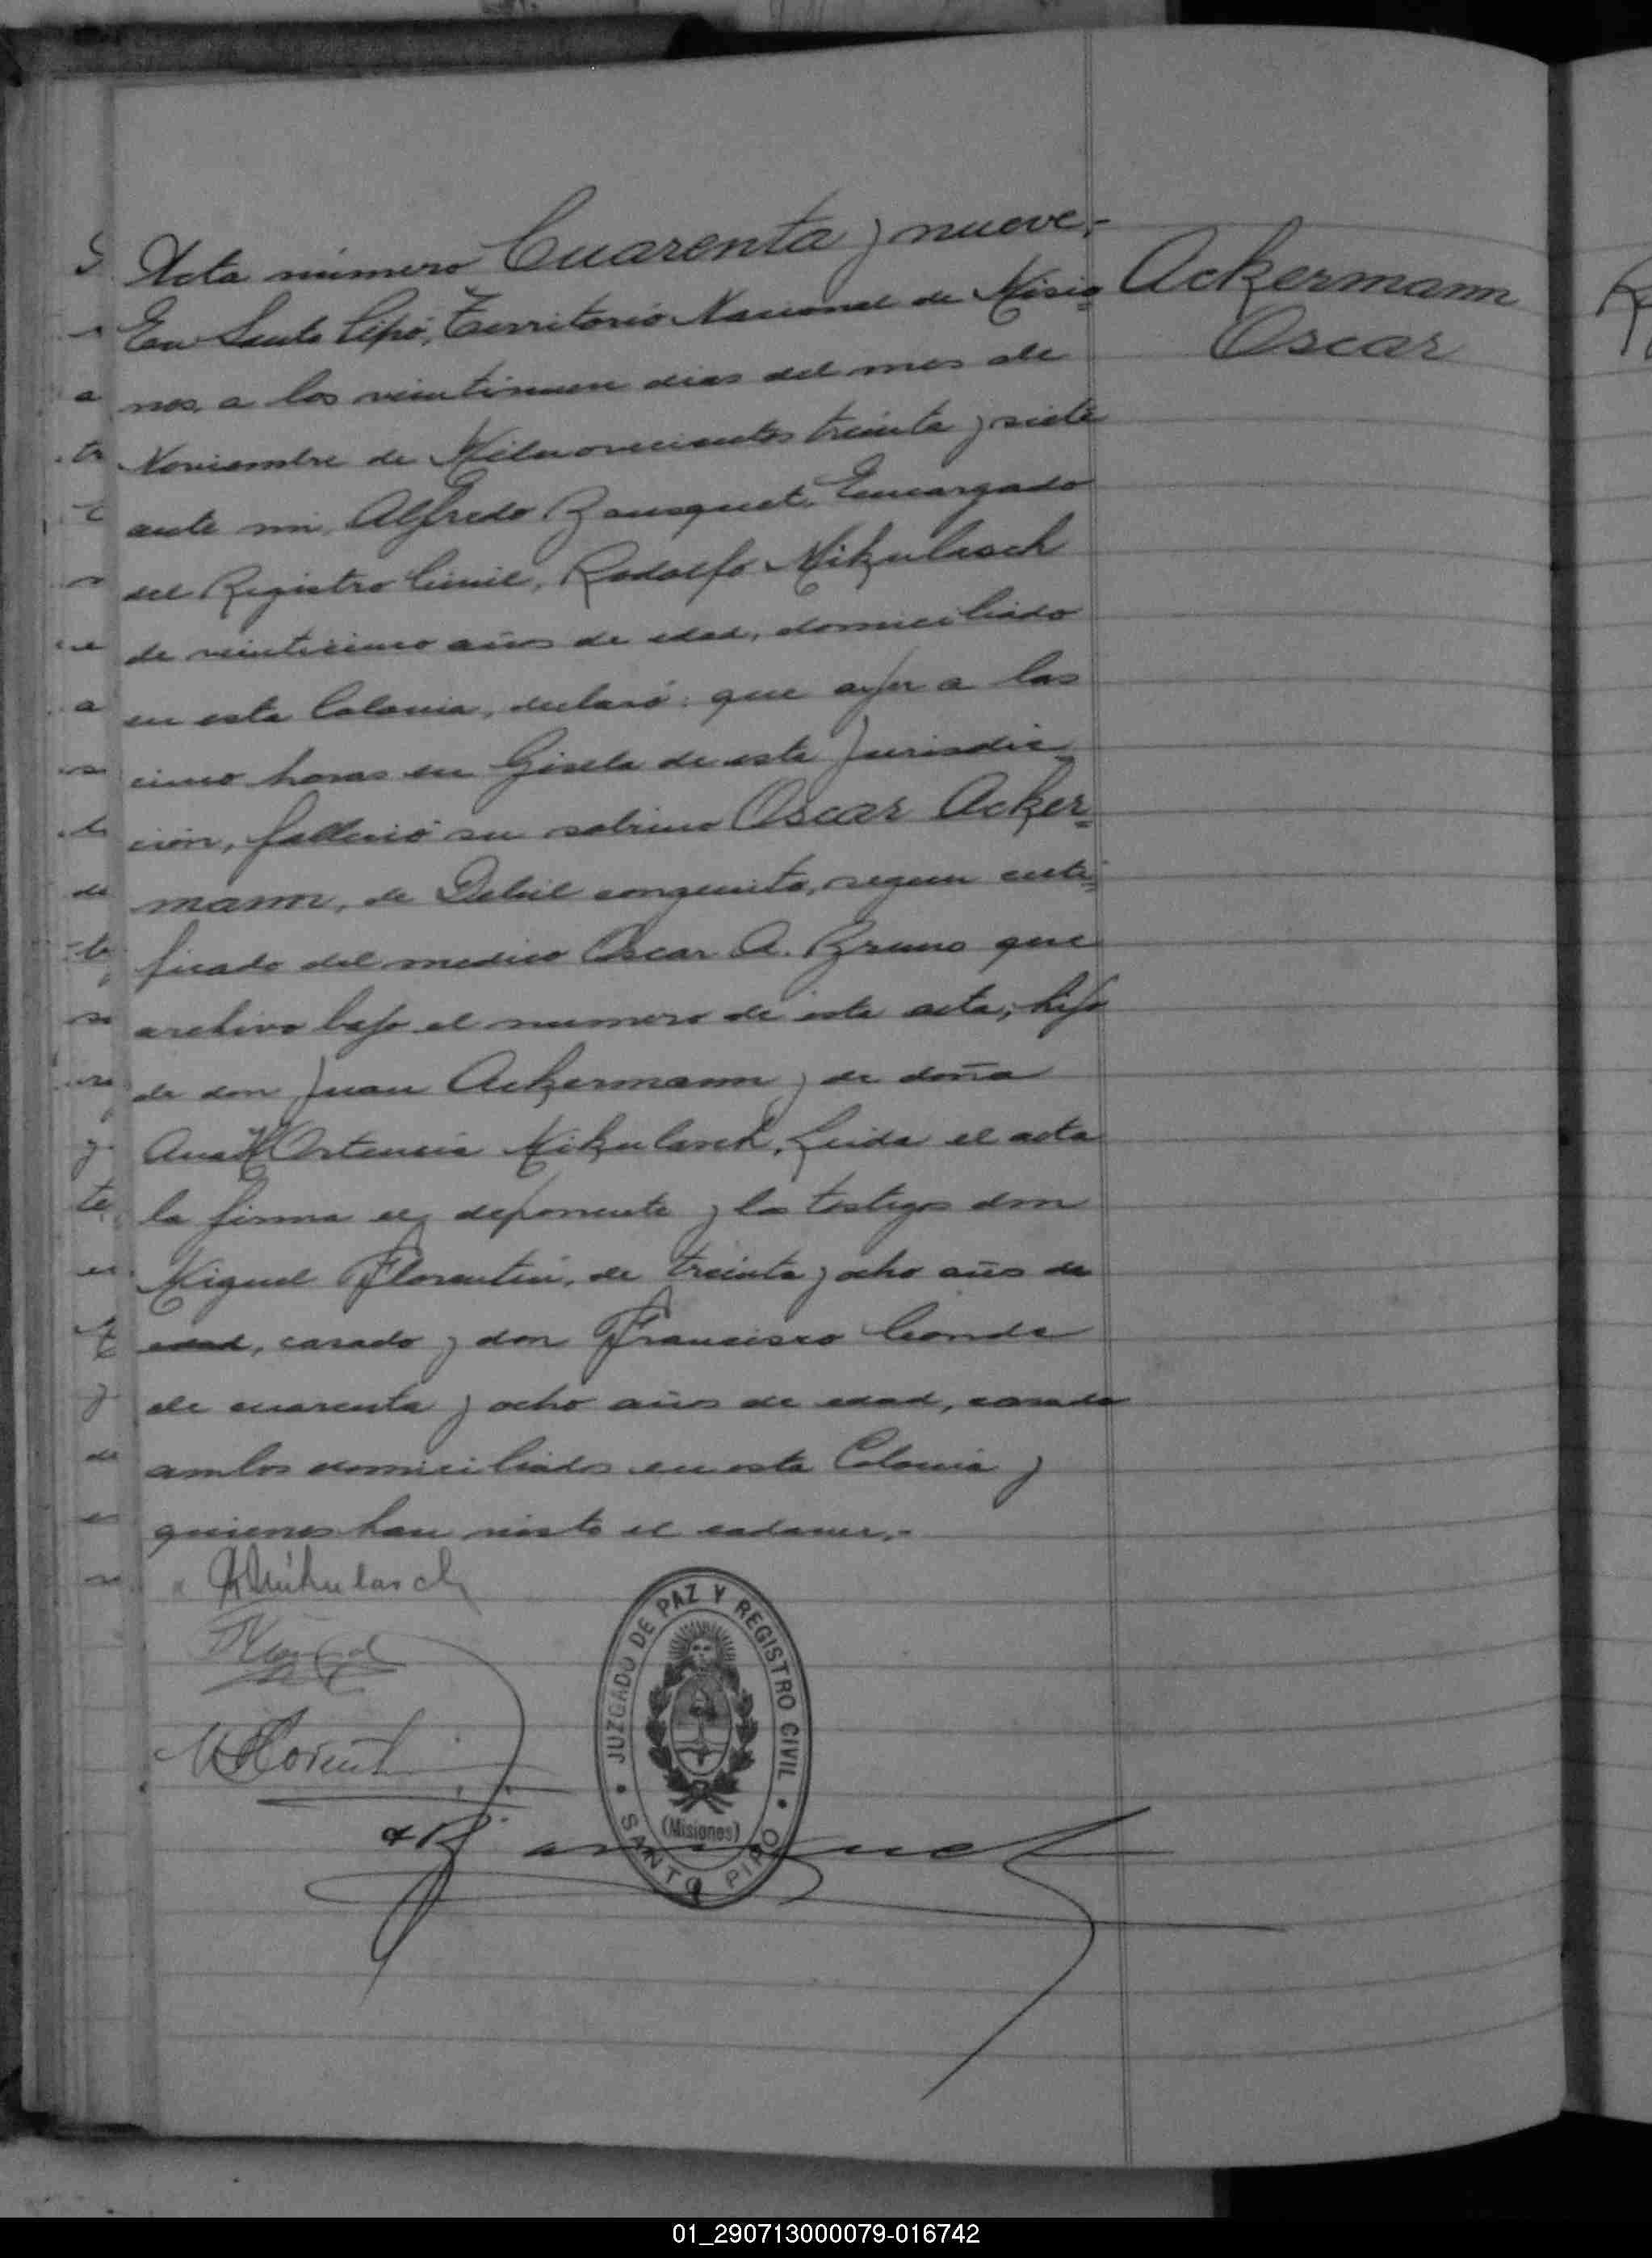 Acta número Cuarenta y nueve.-
En Santo Pipó, Territorio Nacional de Misio=
nes, a los veintinueve dias del mes de
Noviembre de Milnovecientos treinta y siete
ante mi, Alfredo Bousquet, Encargado
del Registro Civil, Rodolfo Mikulasch
de veinticinco años de edad, domiciliado
en esta Colonia, declaró: que ayer a las
cinco horas en Gisela de esta Jurisdic=
ción, falleció su sobrino Oscar Acker=
mann, de Debil congenito, segun certi=
ficado del medico Oscar A. Bruno que
archivo bajo el numero de esta acta; hijo
de don Juan Ackermann y de doña
Ana Hortencia Mikulasch. Leida el acta
la firma el deponente y los testigos don
Miguel Florentin, de treinta y ocho años de
edad, casado y don Francisco Conde
de cuarenta y ocho años de edad, casado
ambos domiciliados en esta Colonia y
quienes han visto el cadaver.-
Ackermann
Oscar
R Mikulasch
M Florentin
A Bousquet
JUZGADO DE PAZ Y REGISTRO CIVIL
(Misiones)
SANTO PIPO
01_290713000079-016742